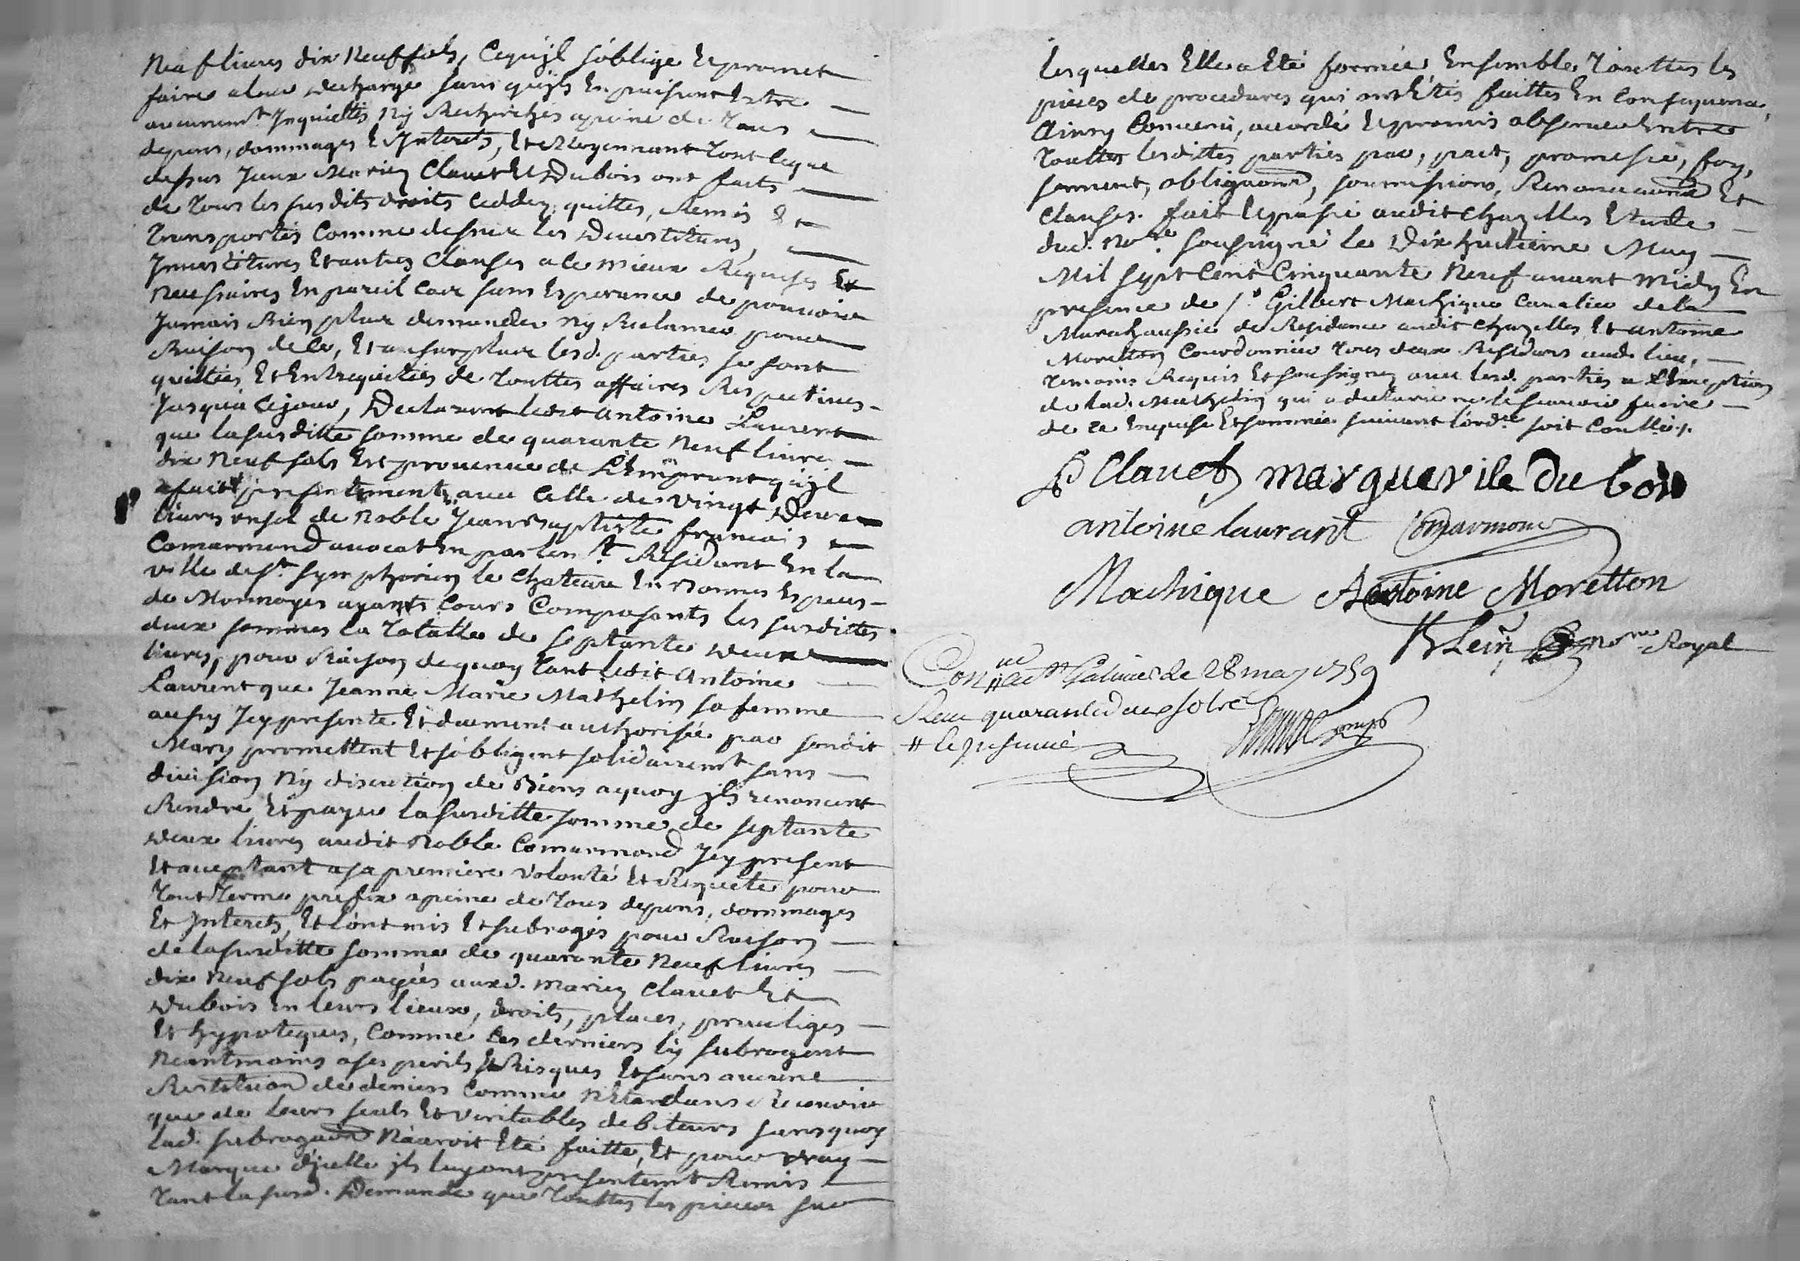 neuf livres dix neuf sols, Ce qu'jl s'oblige Et promet
faire a leur decharge sans qu'jls En puissent Estre
aucunemt. Jnquiettés Ny Recherchés a peine de Tous
depens, dommages Et Jnterets, Et Moyennant Tout ce que
dessus Jceux Mariez Clavet Et Dubois ont faits
de Tous les susdits droits Ceddez, quittes, Remis Et
Transportés Comme dessus les Devestitures,
Jnvestitures Et autres Clauses a le mieux Requises Et
Necessaires En pareil Cas sans Esperance de pouvoir
Jamais Rien plus demander Ny Reclamer pour
Raison de Ce, Et au surplus lesd. parties se sont
quittées Et Entrequittées de Touttes affaires Respectives
Jusqu'a Ce jour, Declarant ledit antoine Laurent
que la susditte somme de quarante Neuf livres
dix Neuf sols Est provenue de L'Emprunt qu'jl
a fait presentement avec Celle de vingt Deux
livres un sol de Noble Jean Baptiste francois
Comarmond avocat En parlemt. Residant En la
ville de St. Symphorien le Chateau En Bonnes Especes
de Monnoyes ayants Cours Composants les susdittes
deux sommes la Totalle de septante deux
livres, pour Raison de quoy Tant ledit Antoine
Laurent que Jeanne Marie Mathelin sa femme
aussy Jcy presente Et duement authorisée par sondit
Mary promettent Et s'obligent solidairemt. sans
division Ny discution de Biens a quoy jls renoncent
Rendre Et payer la susditte somme de septante
deux livres audit Noble Comarmond Jcy present
Et acceptant a sa premiere volonté Et Requete pour
Tout Terme prefix a peine de Tous depens, dommages
Et Jnterets, Et l'ont mis Et subrogés pour Raison
de la susditte somme de quarante Neuf livres
dix Neuf sols payés auxd. mariez Clavet Et
Dubois En leurs lieux, droits, places, privileges
Et hypoteques, Comme Ces derniers l'y subrogent
Neantmoins a ses perils Et Risques Et sans aucune
Restitution de deniers Comme N'Etandans Recevoir
que de leurs seuls Et veritables debiteurs sans quoy
lad. subrogaon N'auroit Eté faitte, Et pour vray
Marque d'jcelle jls luy ont presentemt Remis
Tant la susd. Demande que Touttes les pieces sur
lesquelles Elle a Eté formée Ensemble Touttes les
pieces de procedures qui ont Etés faittes En Consequence,
Ainsy Convenu, accordé Et promis observer Entre
Touttes lesdittes parties par, pact, promesse, foy,
serment, obligaons, soumissions, Renonciaons Et
Clauses. fait Et passé audit Chazelles Etude
dud. Nore. soussigné le Dix huitieme May
Mil sept Cent Cinquante Neuf avant midy En
presence de Sr. Gilbert Machique Cavalier de la
Marechaussée de Residance audit Chazelles Et antoine
Moretton Courdonnier Tous deux Residans aud. lieu,
Temoins Requis Et soussignez avec lesd. parties a L'Exeption
de lad. Mathelin qui a declaré ne le sçavoir faire
de Ce Enquise Et sommée suivant l'ordce. soit Contllé./.
Clavet marguerite du bois
antoine laurant Comarmond
Machique Antoine Moretton
Klein nore Royal
Con.lé a St Galmier le 28 may 1759
Reçu quarante deux sols